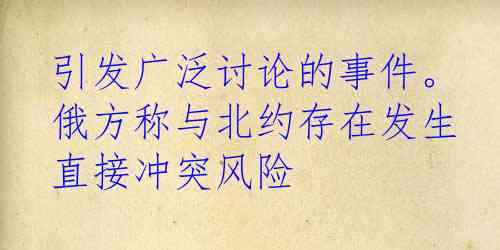 引发广泛讨论的事件。
俄方称与北约存在发生
直接冲突风险